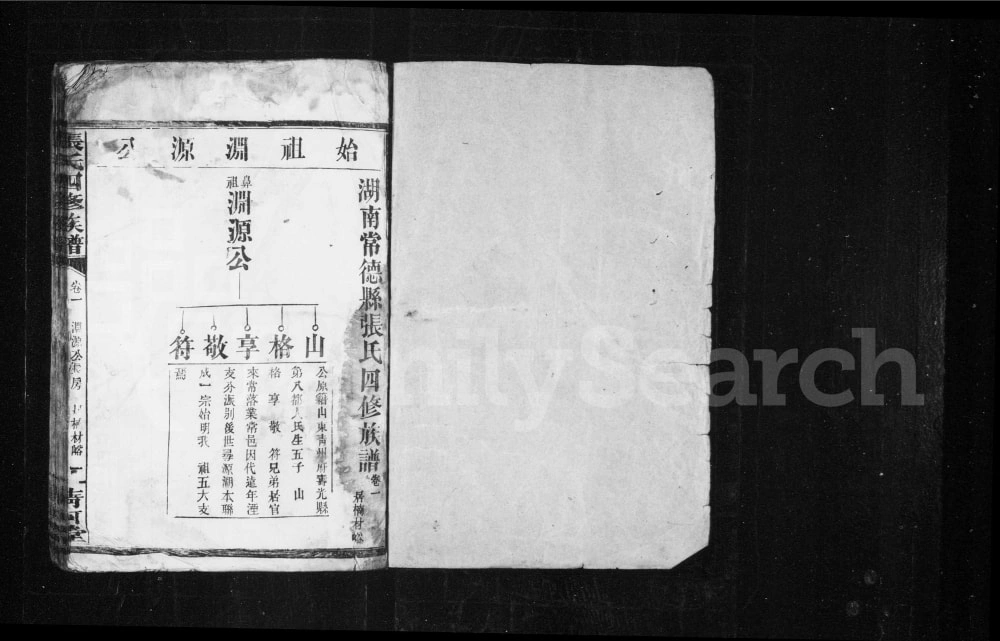 始祖淵源公
湖南常德縣張氏四修族譜 卷一
居楠材峪
鼻祖淵源公
山
格
享
敬
符
公原籍山東青州府壽光縣
第八都人氏生五子 山
格 享 敬 符兄弟居官
來常落業常邑因代遠年湮
支分派別後世尋源溯本聯
成一宗始明我 祖五大支
焉
張氏四修族譜
卷一
淵源公
材峪
清河堂
FamilySearch